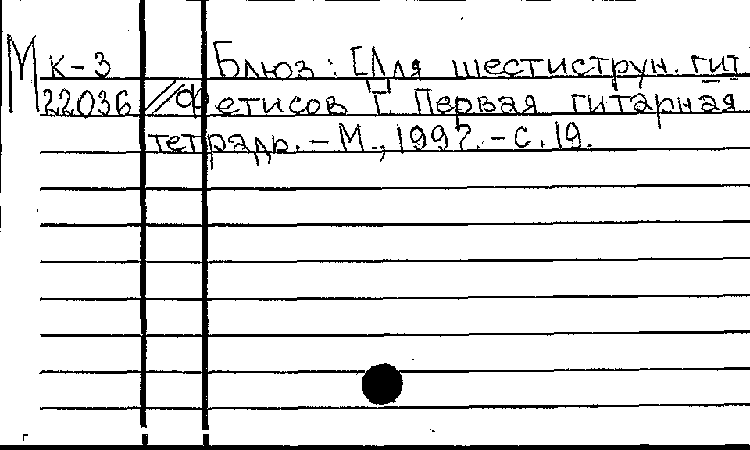 М К-3 Блюз: [Для шестиструн. гит
22036 //Фетисов Г. Первая гитарная
тетрадь. - М., 1997. - с. 19.